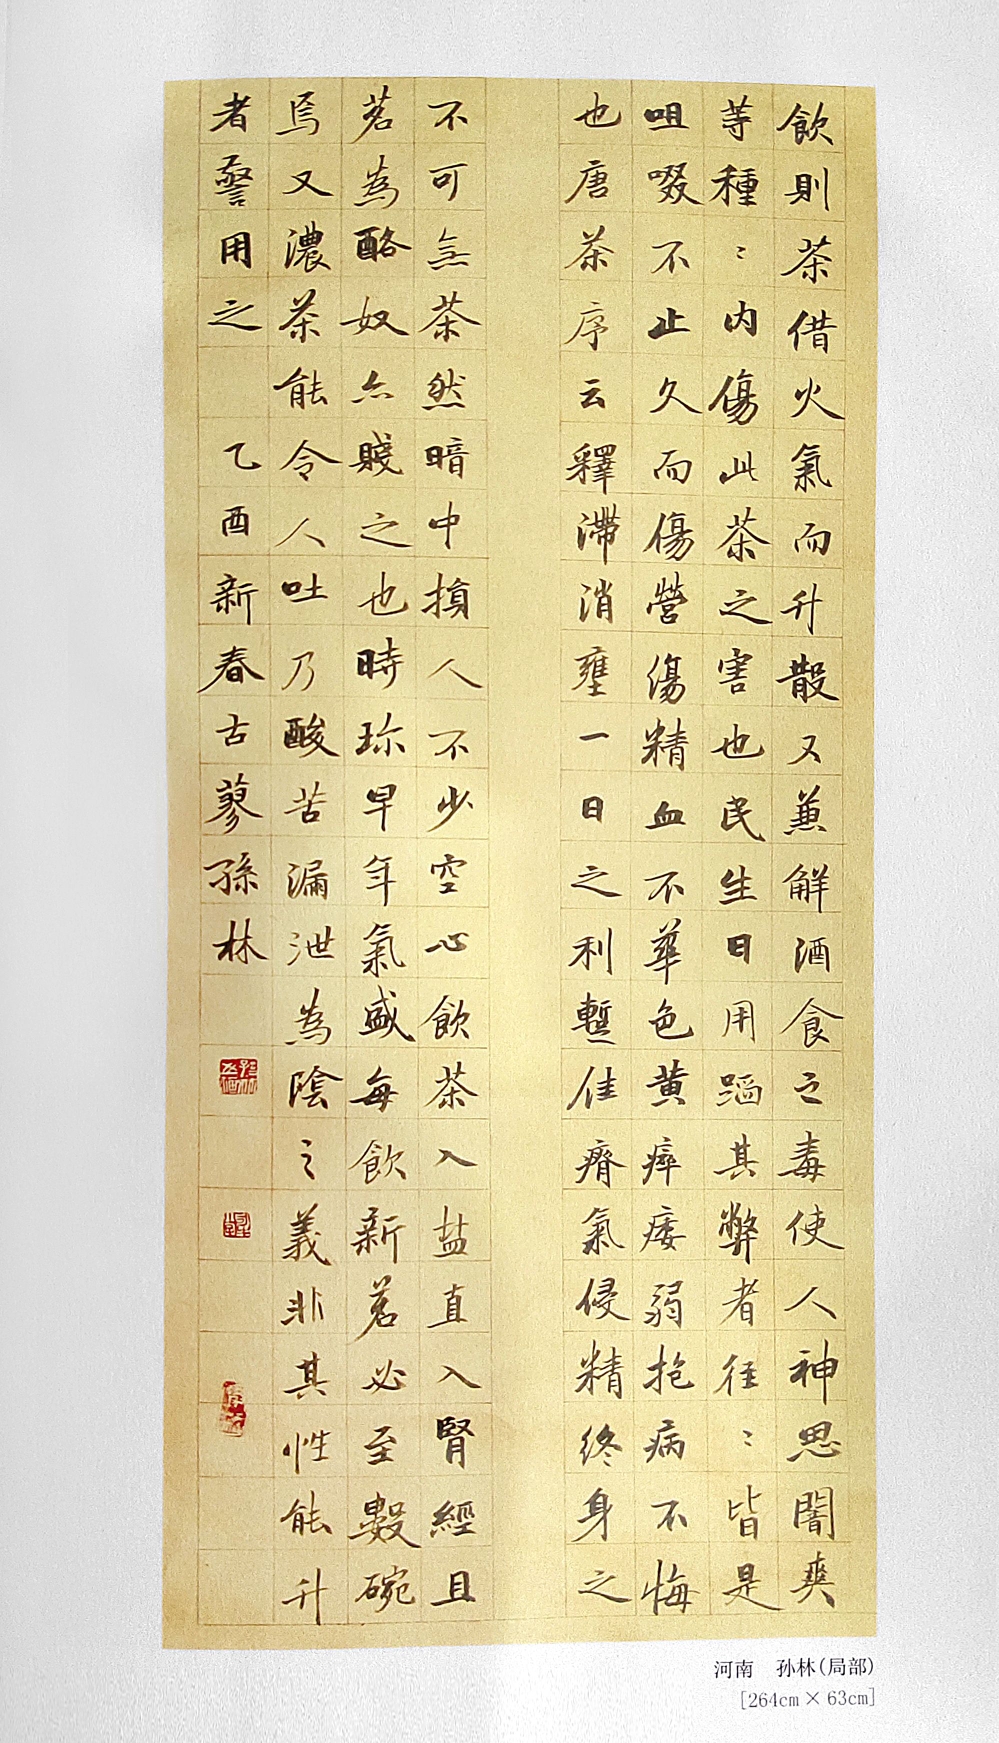 飲則茶借火氣而升散又兼解酒食之毒使人神思闓爽
等種〻內傷此茶之害也民生日用蹈其弊者往〻皆是
咀啜不止久而傷營傷精血不華色黃瘁痿弱抱病不悔
也唐茶序云釋滯消壅一日之利暫佳瘠氣侵精終身之
不可無茶然暗中損人不少空心飲茶入盐直入腎經且
茗為酪奴亦賤之也時珍早年氣盛每飲新茗必至數碗
焉又濃茶能令人吐乃酸苦漏泄為陰之義非其性能升
者警用之 乙酉新春古蓼孫林
河南 孙林(局部)
[264cm×63cm]